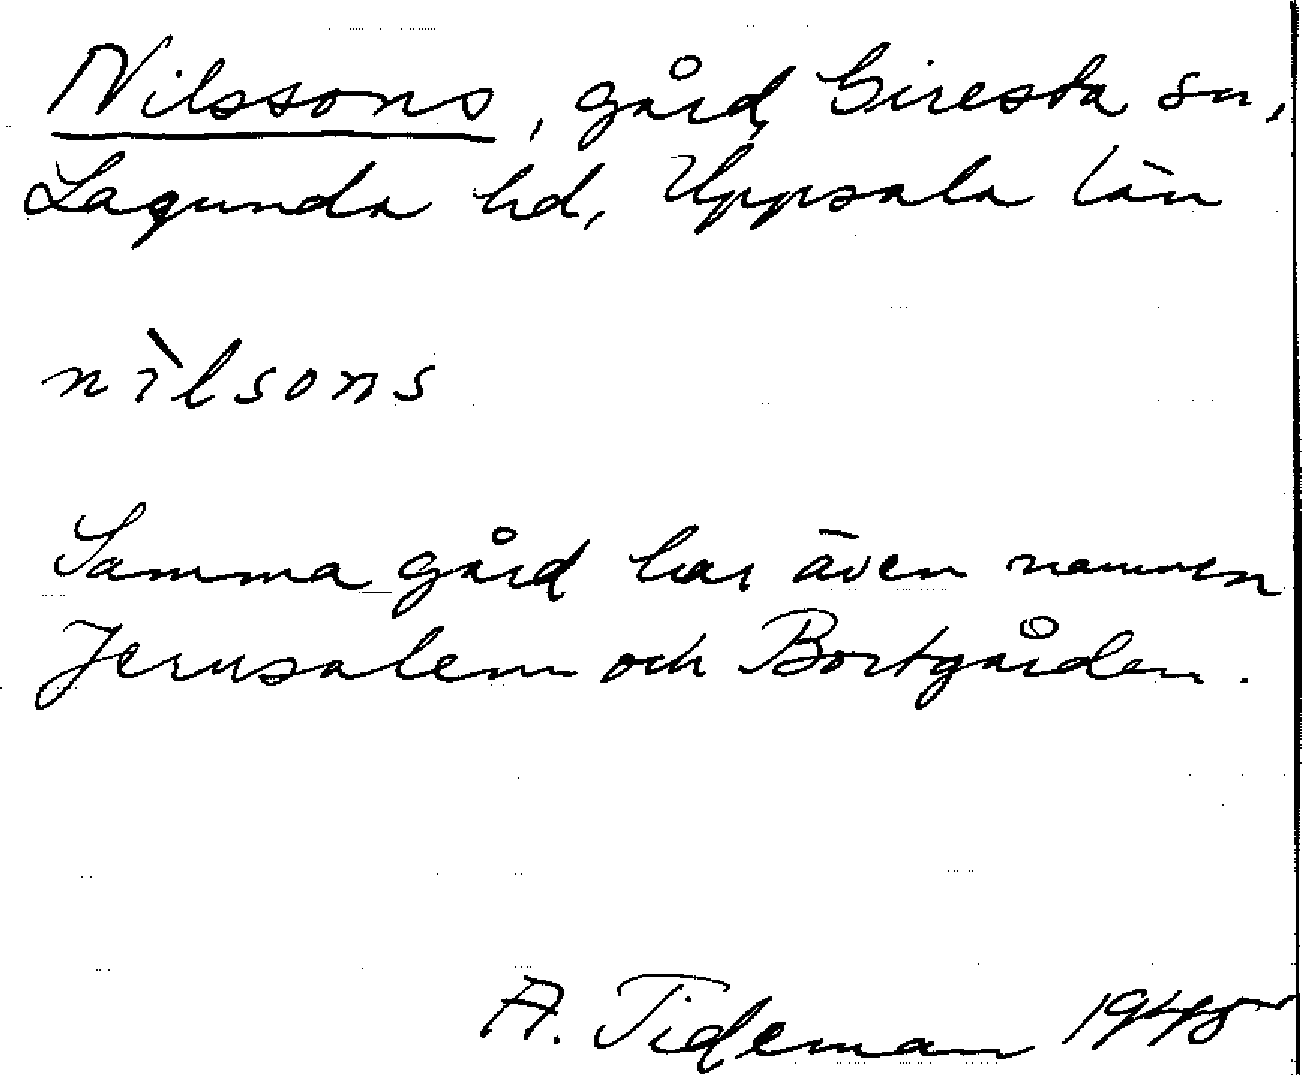 Nilssons, gård, Giresta sn,
Lagunda hd, Uppsala län
nìlsons
Samma gård har även namnen
Jerusalem och Bortgården.
A. Tideman 1948